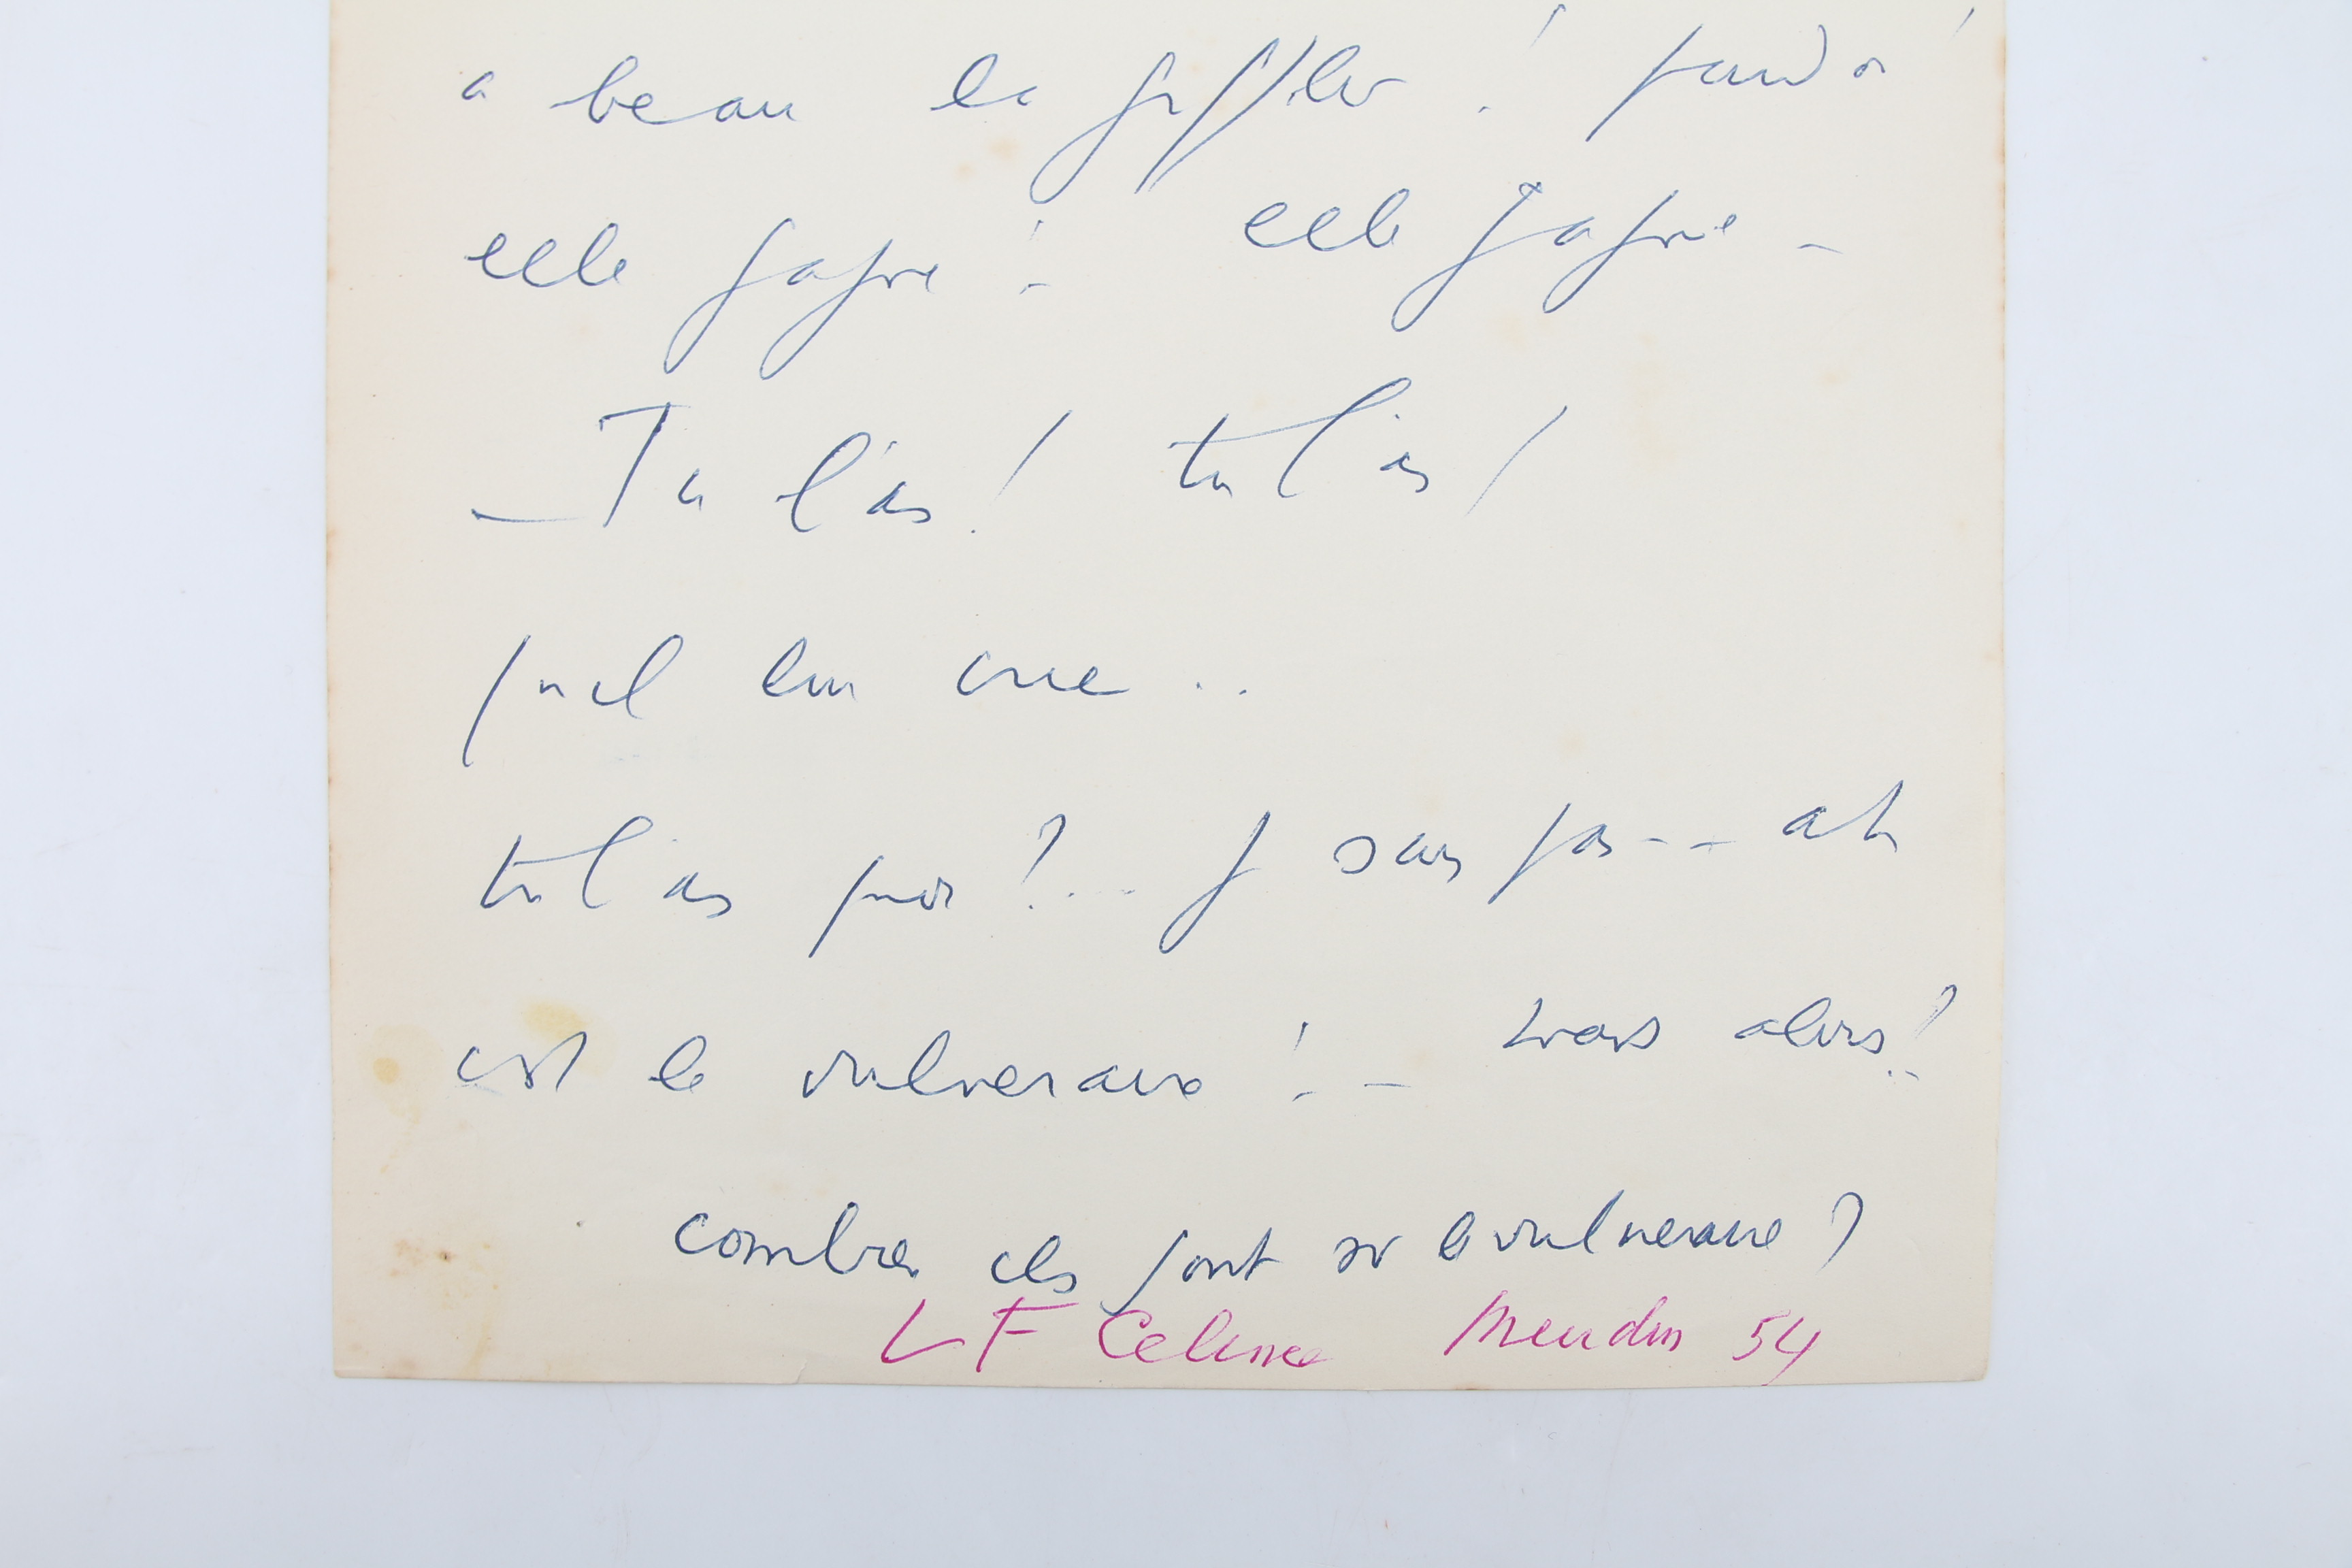 a beau la giffler ! quand on
elle gafre ! elle gafre -
- Tu l'as ! tu l'as !
qu'il lui crie ..
tu l'as quoi ? ... J sais pas -- ah
c'est le vulneraire ! - vrais alors ?
combien ils sont sur le vulneraire ?
LF Celine Meudon 54